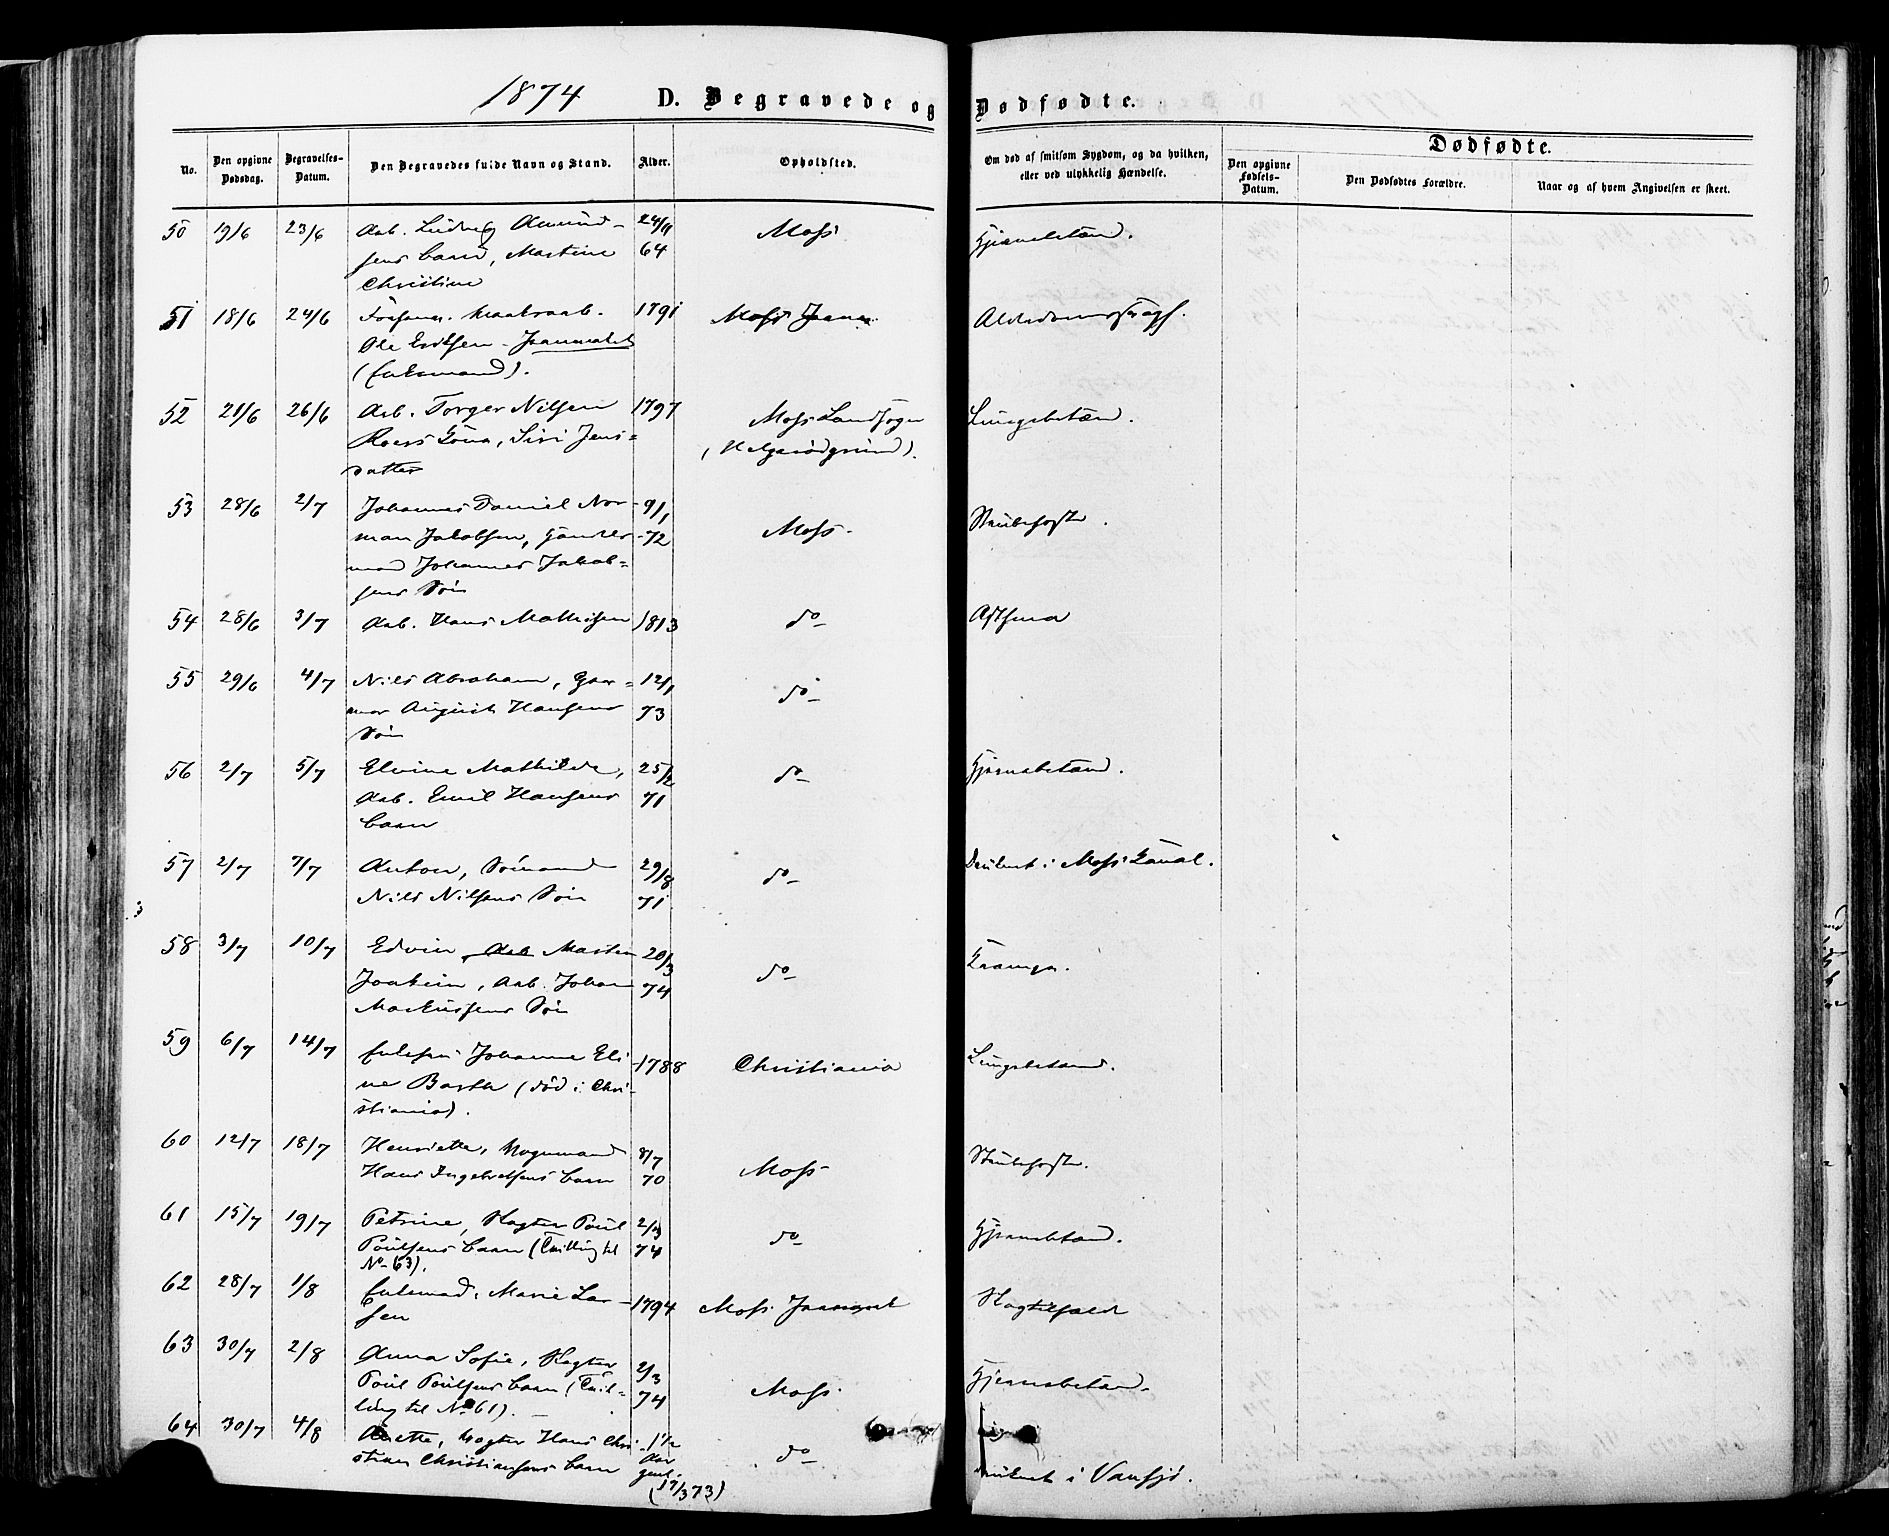 1874 D. Begravede og Dødfødte.
No. Den opgivne Dødsdag. Begravelses-Datum. Den Begravedes fulde Navn og Stand. Alder. Opholdsted. Om død af smitsom Sygdom, og da hvilken, eller ved ulykkelig Hændelse. Dødfødte.
Den opgivne Fødsels-Datum. Den Dødfødtes Forældre. Naar og af hvem Angivelsen er skeet.
50 19/6 23/6 Arb. Ludvig Amund- 24/9 Moss Hjernebetænd.
sens barn, Martine 64
Christine
51 18/6 24/6 1791 Moss Alderdomssvagh.
Ole Eriksen -
(Enkemand).
52 21/6 26/6 Arb. Torger Nilsen 1797 Moss Landsogn Lungebetænd.
Roers Kone, Siri Jens= (Helgerødgrund).
datter
53 28/6 2/7 Johannes Daniel Nor- 9/1 Moss Strubehoste.
man Jakobsen, Handels- 72
mand Johannes Jakob=
sens Søn
54 28/6 3/7 Arb. Hans Mathisen 1813 do Asthma
55 29/6 4/7 Nils Abraham, Gar= 12/1 do
ver August Hansens 73
Søn
56 2/7 5/7 Elvine Mathilde, 25/2 do Hjernebetænd.
Arb. Emil Hansens 71
barn
57 2/7 7/7 Anton, Sømand 29/8 do Druknet i Moss Kanal.
Nils Nilsens Søn 71
58 3/7 10/7 Edvin, Arb Martin 20/3 do Krampe.
Joakim, Arb. Johan 74
Markussens Søn
59 6/7 14/7 Johanne Eli- 1788 Christiania Lungebetænd.
ne Barth (død i Chri-
stiania).
60 12/7 18/7 Henriette, Vognmand 8/7 Moss Strubehoste.
Hans Ingebretsens barn 70
61 15/7 19/7 Petrine, Slagter Poul 2/3 do Hjernebetænd.
Poulsens barn (Tvilling til 74
No 63).
62 28/7 1/8 Marie Lar- 1794 Moss Slagtilfælde
sen
63 30/7 2/8 Anna Sofie, Slagter 2/3 Moss Hjernebetænd.
Poul Poulsens barn (Tvil= 74
ling til No 61).
64 30/7 4/8 Anette, Hans Chri- 1 1/2 do Druknet i Vansjø.
stian Christiansens barn Aar
gml.
(17/3 73)